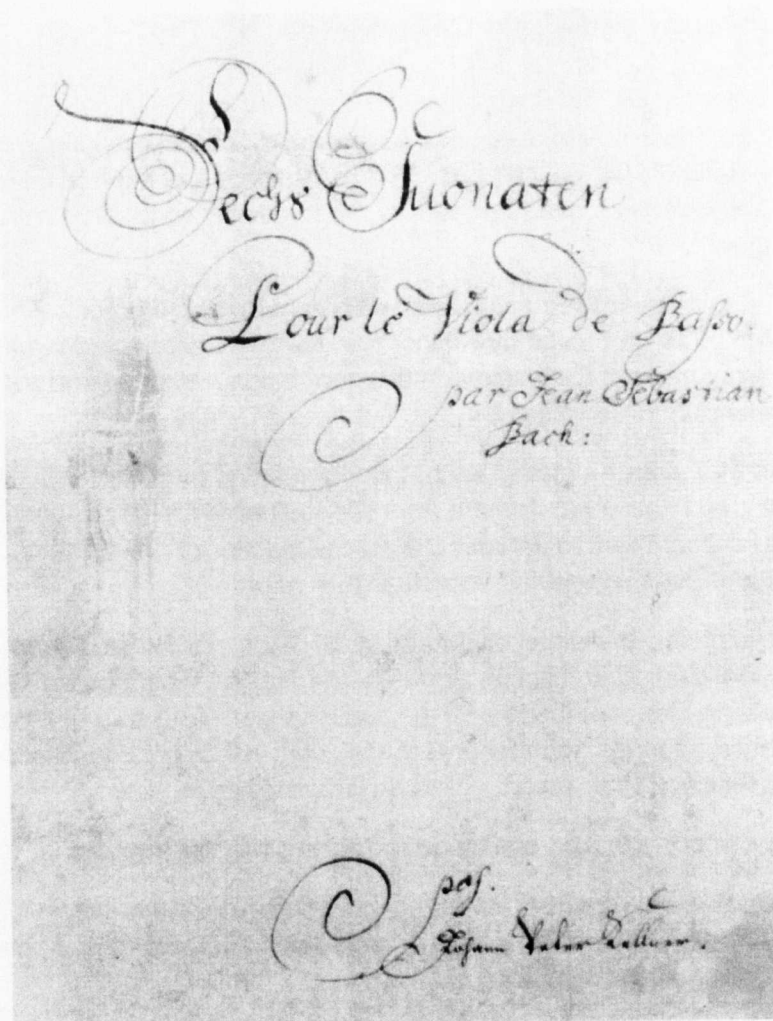 Sechs Suonaten
Pour le Viola de Basso.
par Jean Sebastian
Bach:
pos.
Johann Peter Kellner.